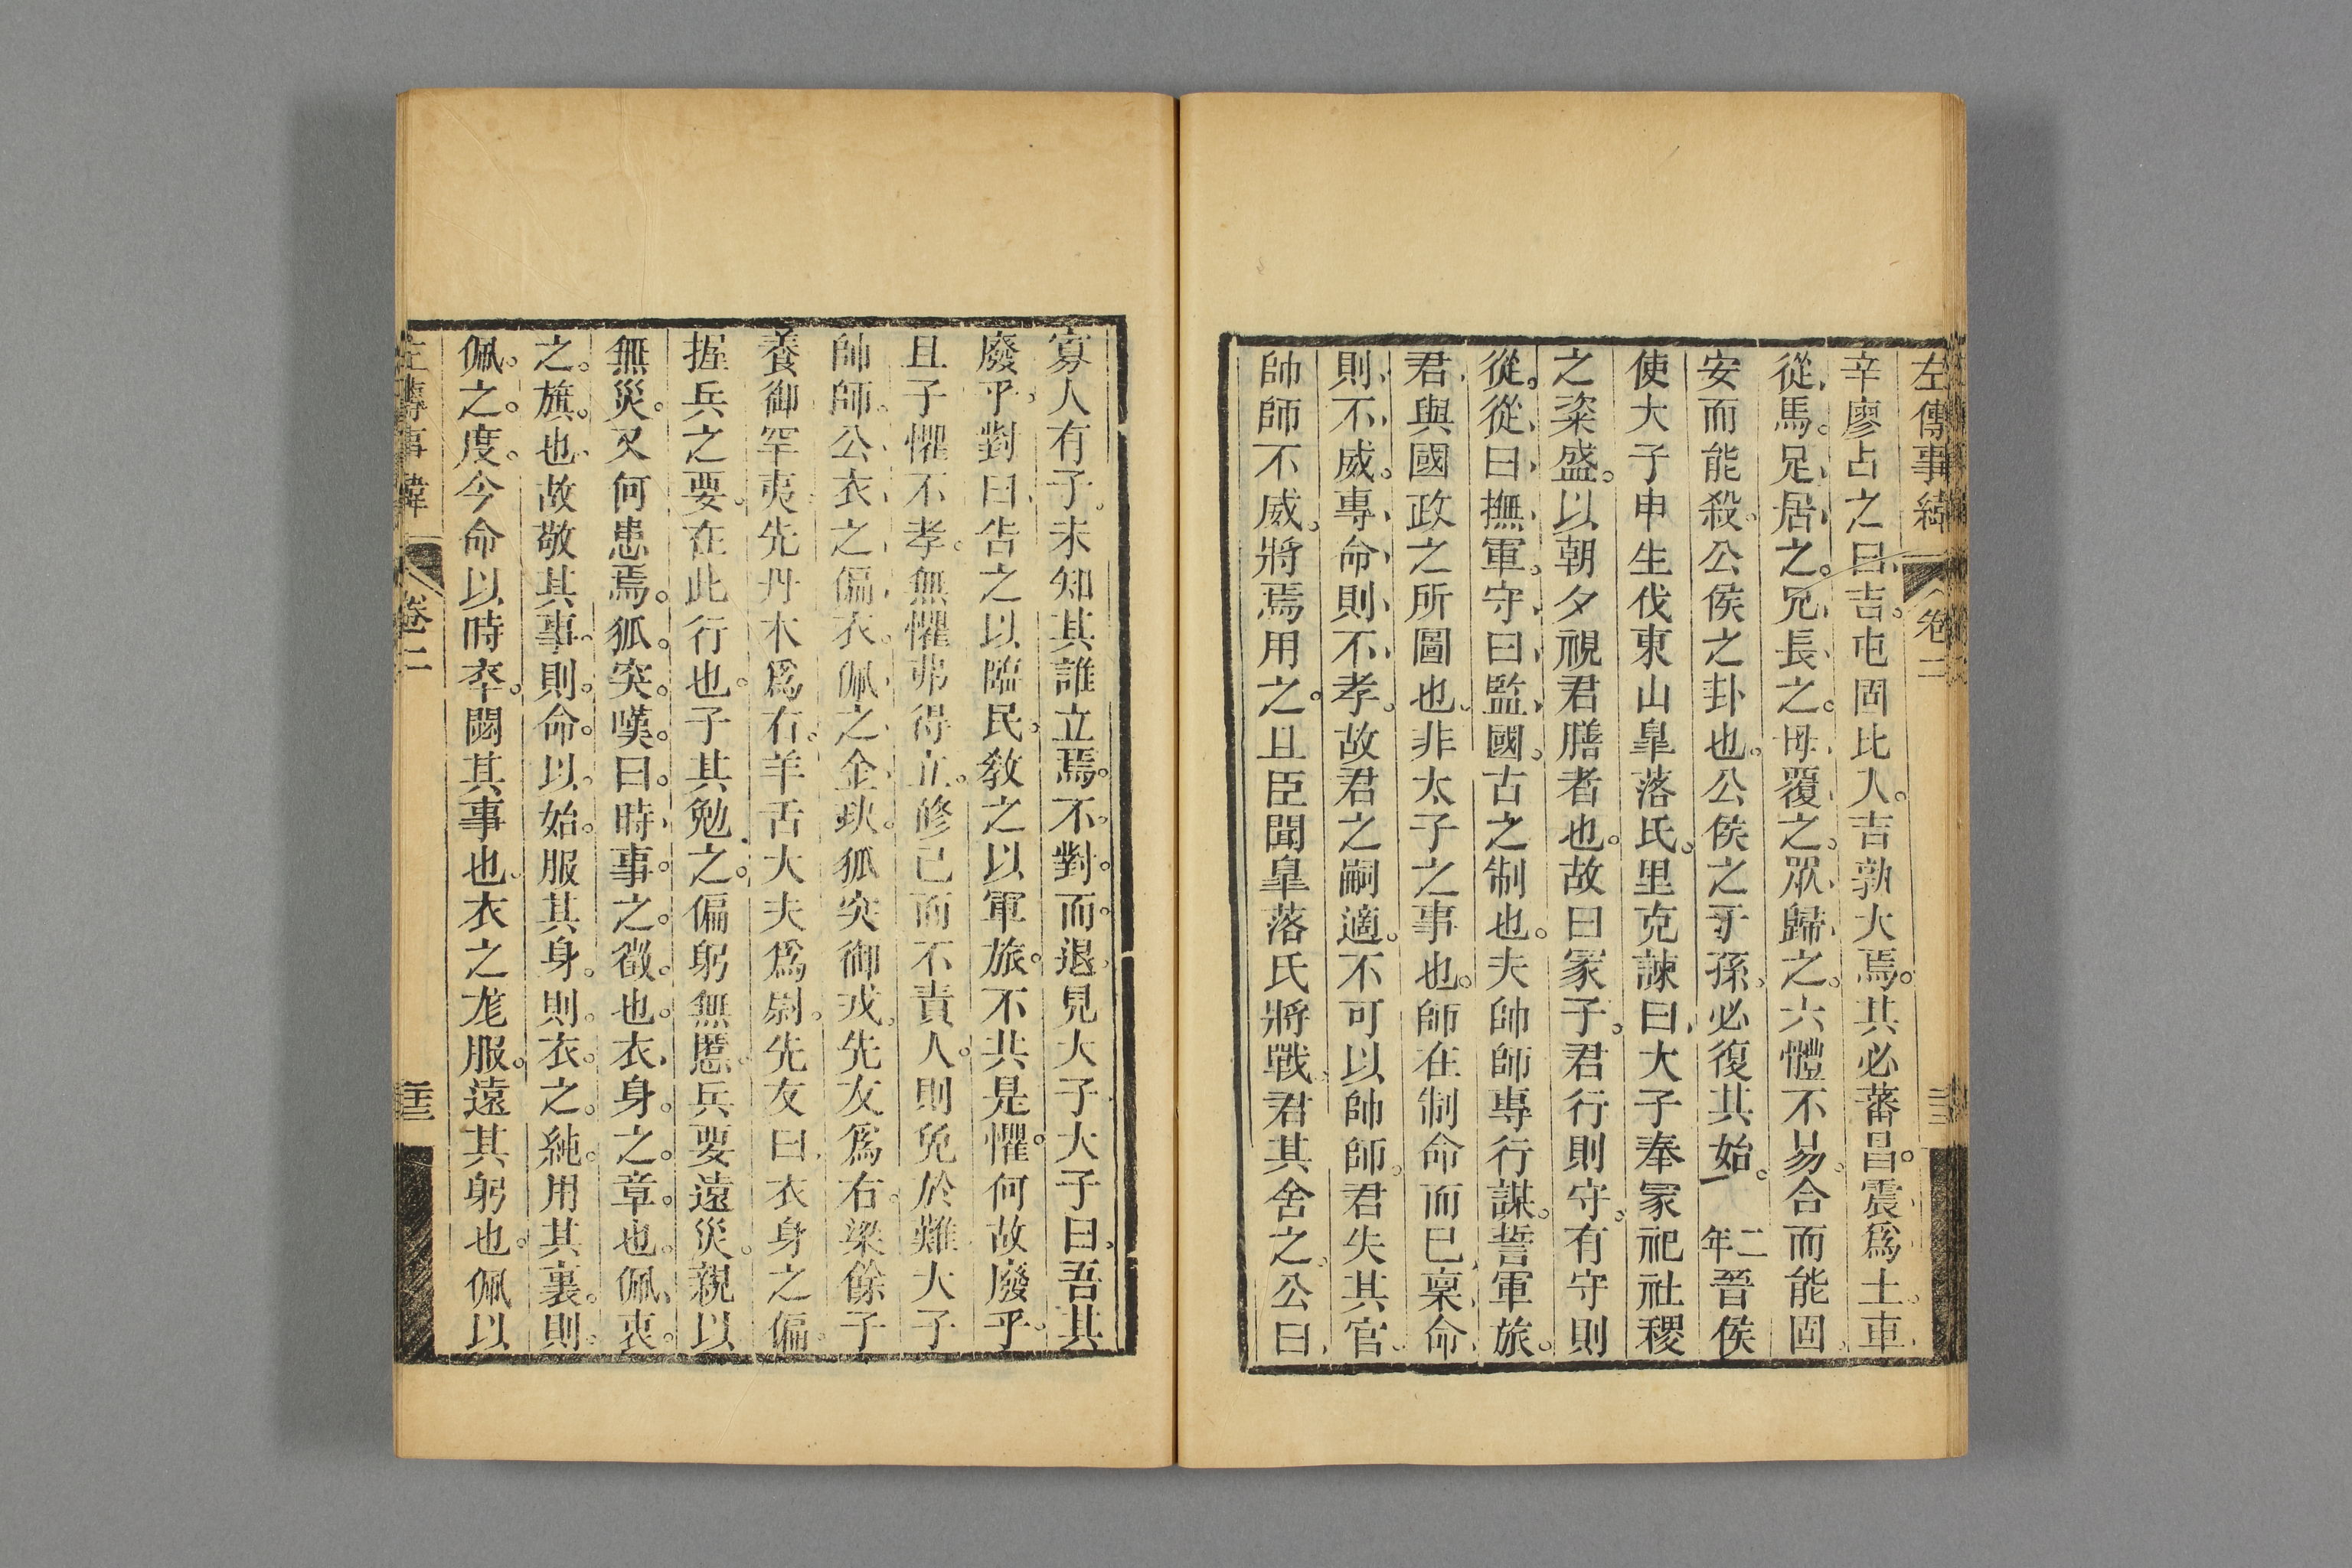 左傳事緯 卷二
辛廖占之曰吉屯固比入吉孰大焉其必蕃昌震爲土車
從馬足居之兄長之母覆之眾歸之六體不易合而能固
安而能殺公侯之卦也公侯之子孫必復其始 二年晉侯
使大子申生伐東山皐落氏里克諫曰大子奉冢祀社稷
之粢盛以朝夕視君膳者也故曰冢子君行則守有守則
從從曰撫軍守曰監國古之制也夫帥師專行謀誓軍旅
君與國政之所圖也非太子之事也師在制命而已稟命
則不威專命則不孝故君之嗣適不可以帥師君失其官
帥師不威將焉用之且臣聞皐落氏將戰君其舍之公曰
寡人有子未知其誰立焉不對而退見大子大子曰吾其
廢乎對曰告之以臨民敎之以軍旅不共是懼何故廢乎
且子懼不孝無懼弗得立修己而不責人則免於難大子
帥師公衣之偏衣佩之金玦狐突御戎先友爲右梁餘子
養御罕夷先丹木爲右羊舌大夫爲尉先友曰衣身之偏
握兵之要在此行也子其勉之偏躬無慝兵要遠災親以
無災又何患焉狐突嘆曰時事之徵也衣身之章也佩衷
之旗也故敬其事則命以始服其身則衣之純用其裏則
佩之度今命以時卒閟其事也衣之尨服遠其躬也佩以
左傳事緯 卷二